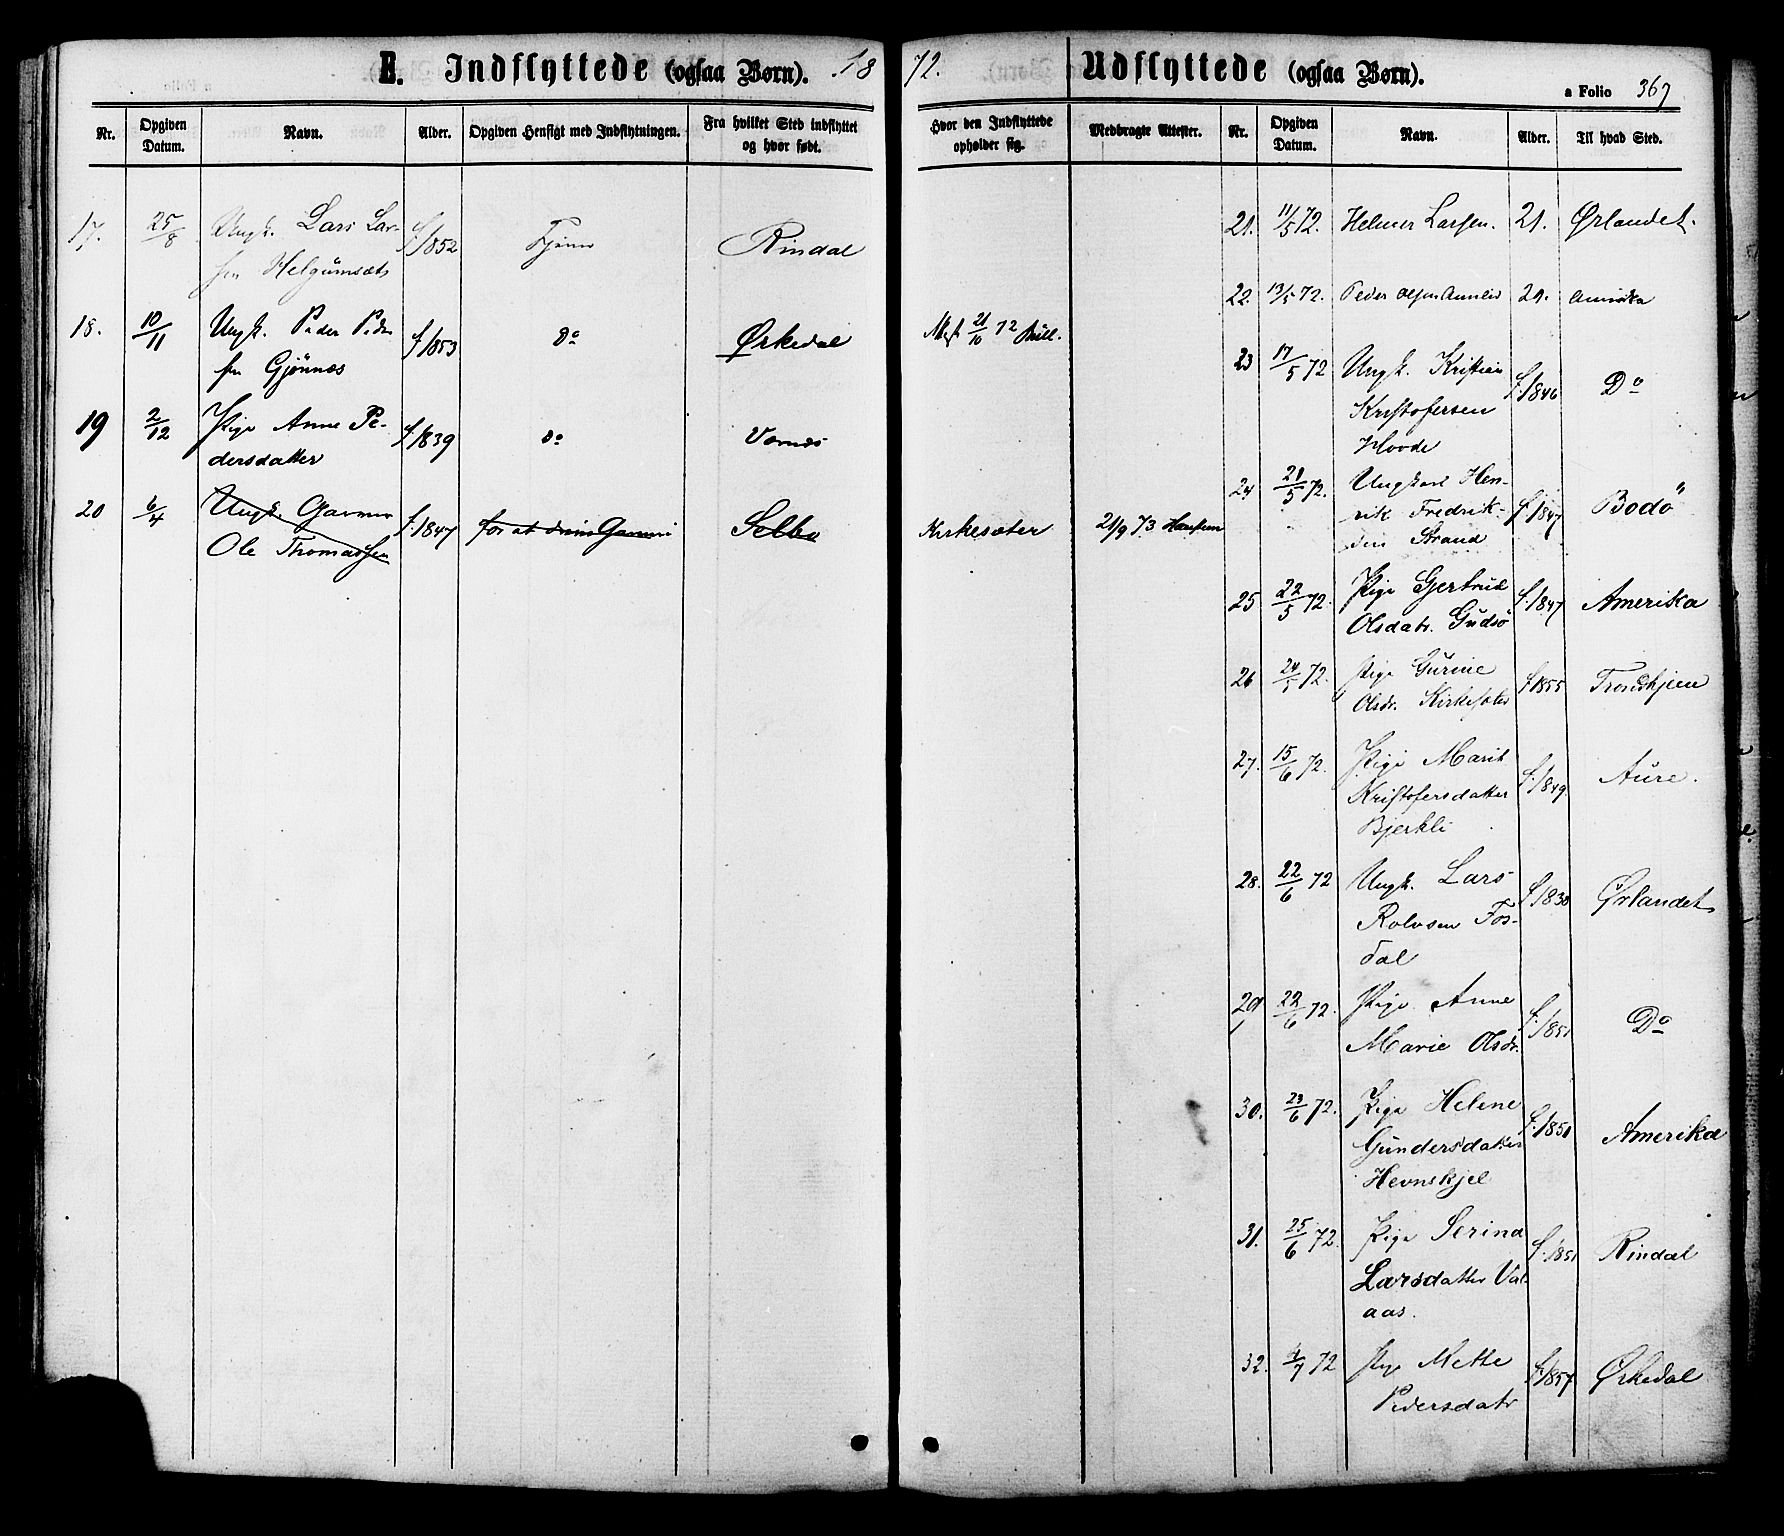 E. Indflyttede (ogsaa Børn). 18
Nr. Opgiven Datum. Navn. Alder. Opgiven Hensigt med Indflytningen. Fra hvilket Sted indflyttet og hvor født.
17. 25/8 Ungk. Lars Lar- f. 1852 Tjene Rindal
sen Helgumsæth
18. 10/11 Ungk. Peder Peder f. 1853 Do Ørkedal
sen Gjönnes
19 2/12 Pige Anne Pe- f. 1839 Do
dersdatter
20 6/4 Ungk. Garver f. 1847 for at drive Garveri Selbo
Ole Thomassen
72. Udflyttede (ogsaa Børn).
a Folio 367
Hvor den Indflyttede opholder sig. Medbragte Attester. Nr. Opgiven Datum. Navn. Alder. Til hvad Sted.
Attest 21/10 72
Kirkesæter 21/9 73
21. 11/5 72. Helmer Larsen. 21. Ørlandet.
22. 13/5 72. Peder Olsen 29. Amerika
23 17/5 72 Ungk. Kristian f. 1846 Do
Kristofersen
Hovde
24 21/5 72. Ungkarl Hen- f. 1847 Bodö
rik Fredrik-
sen Strand
25 22/5 72. Pige Gjertrud f. 1847 Amerika
Olsdatr. Gudsö
26 24/5 72. Pige Gurine f. 1855 Trondhjem
Olsdr. Kirkesæter
27. 15/6 72. Pige Marit f. 1849. Aure.
Kristofersdatter
Bjerkli
28. 22/6 72 Ungk. Lars f. 1830 Ørlandet
Rolvsen Fos-
dal
29 22/6 72. Pige Anne f. 1851 Do
Marie Olsdr.
30. 23/6 72. Pige Helene f. 1851 Amerika
Gundersdatter
Hevnskjel
31. 25/6 72. Pige Serina f. 1851 Rindal
Larsdatter Val-
aas.
32. 4/7 72 Pige Mette f. 1857 Ørkedal
Pedersdatr